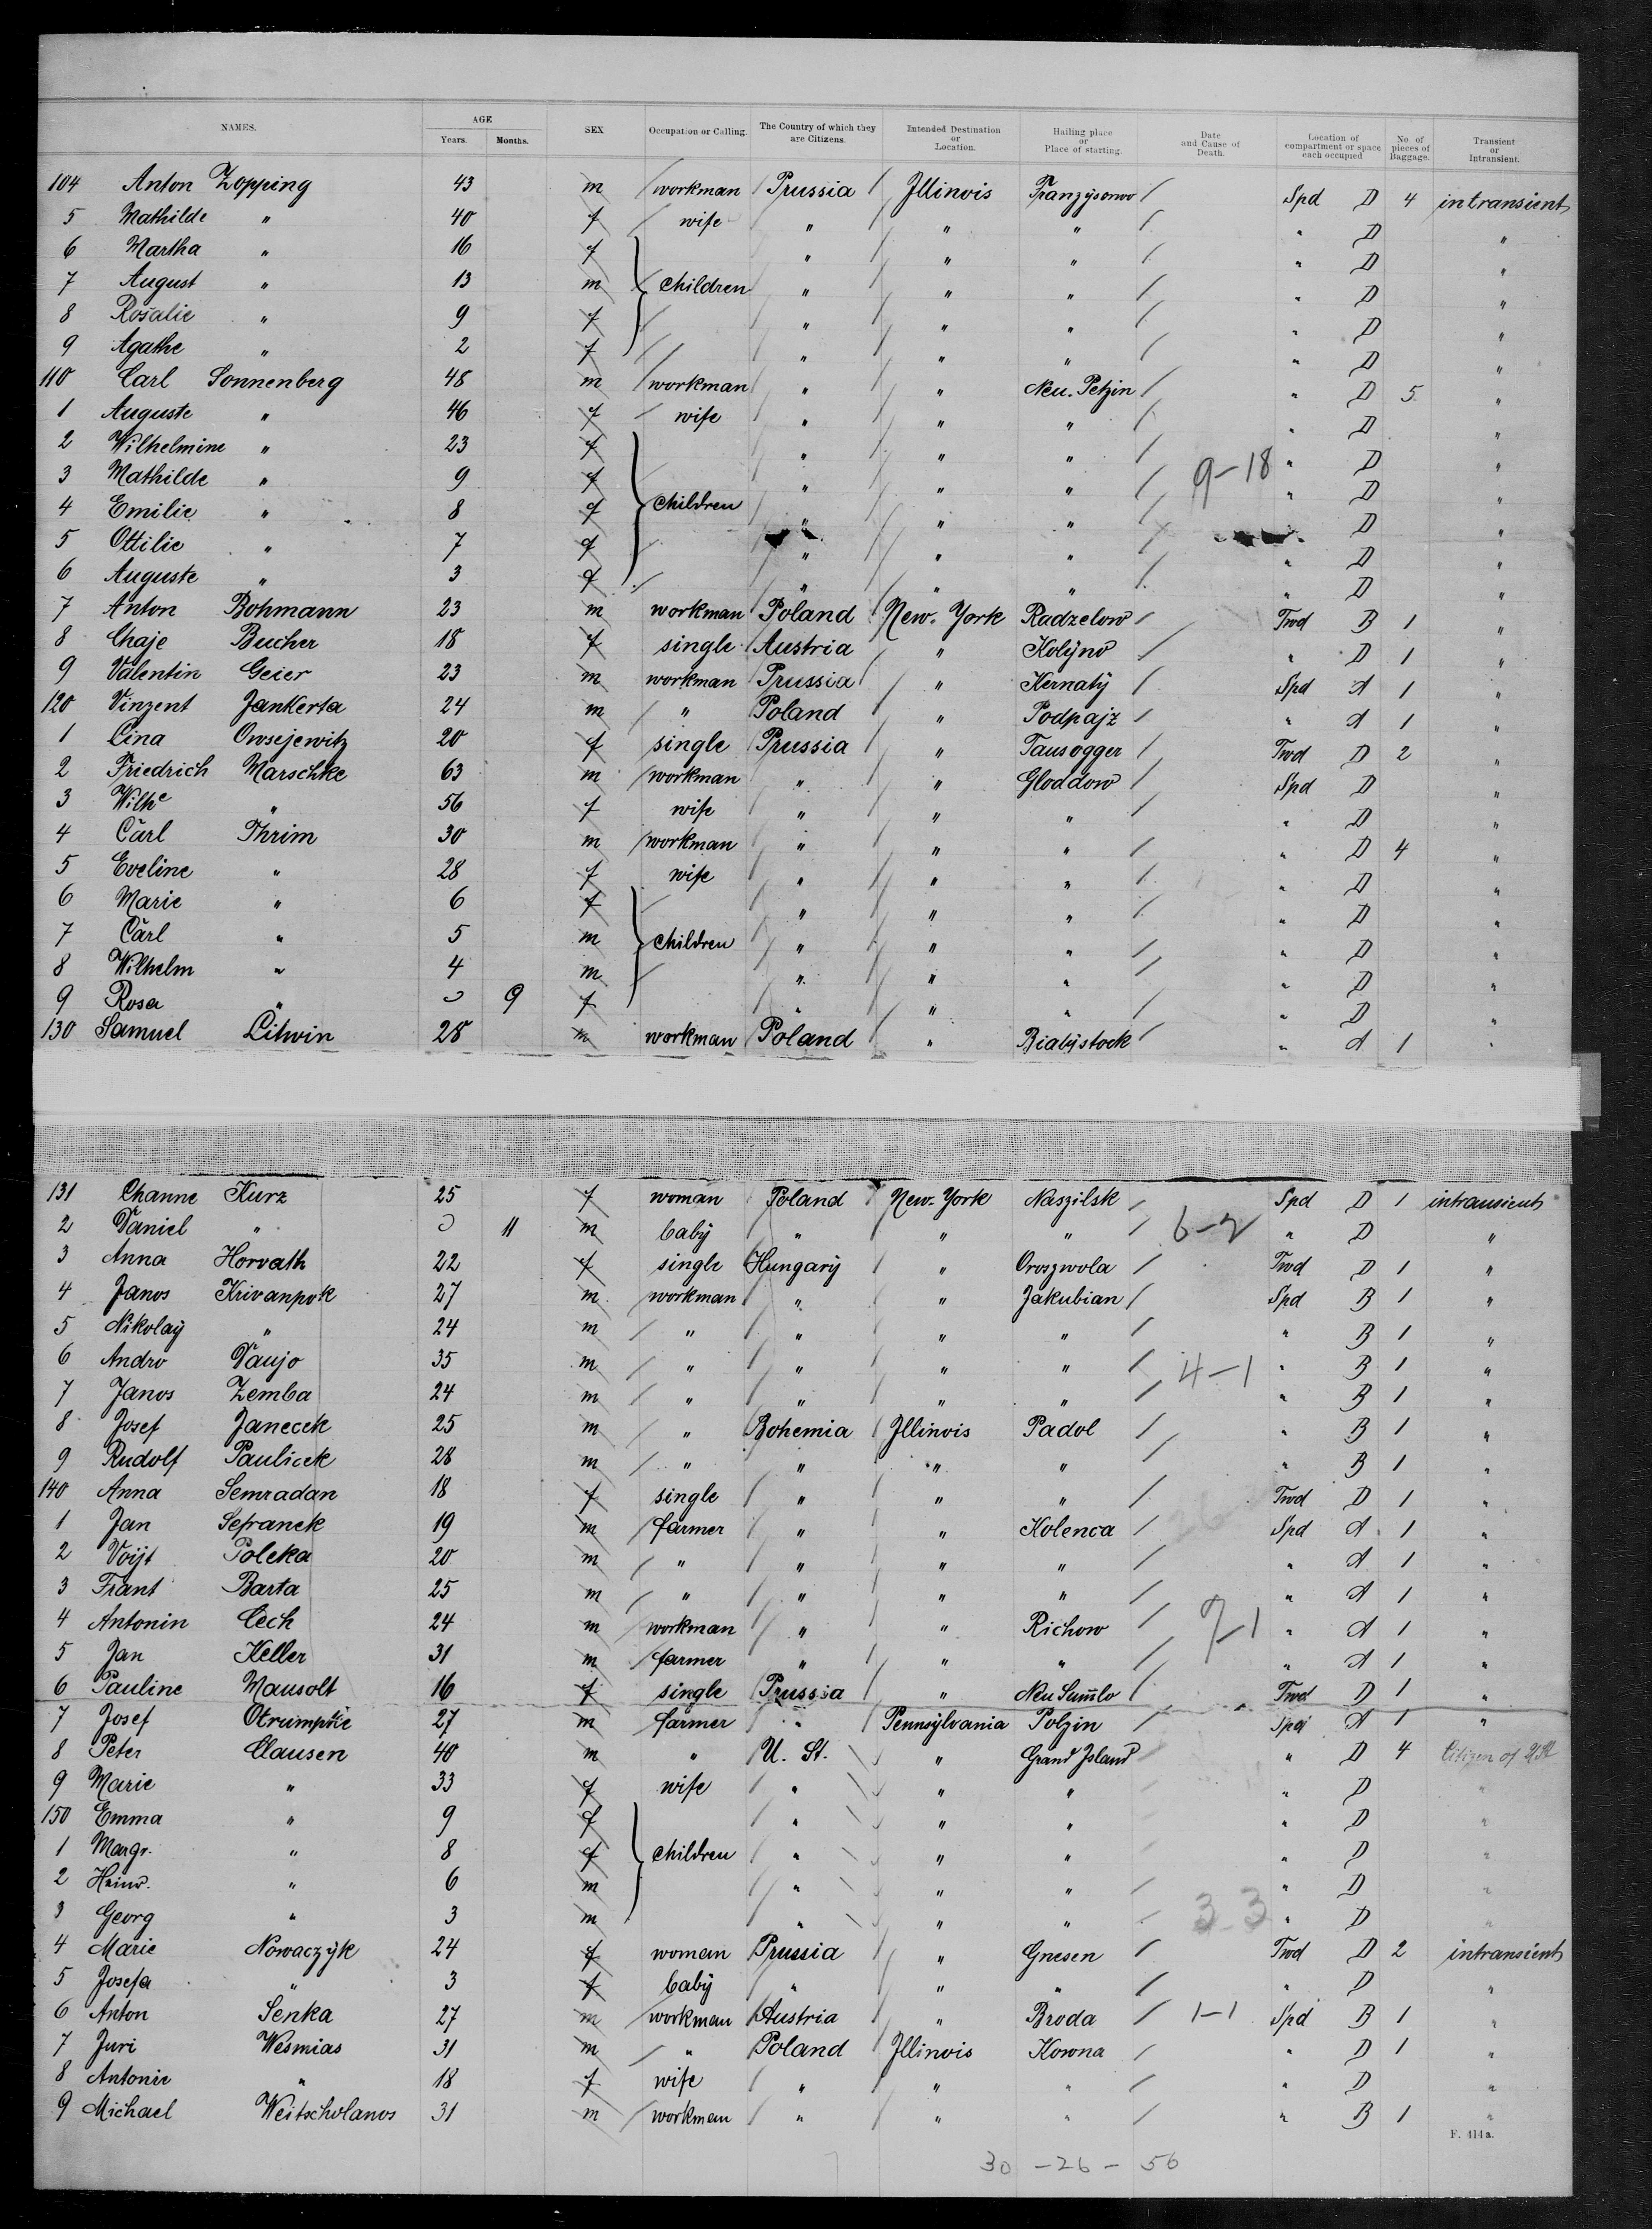 NAMES. AGE Years. Months. SEX Occupation or Calling. The Country of which they are Citizens. Intended Destination or Location. Hailing place or Place of starting. Date and Cause of Death. Location of compartment or space each occupied No. of pieces of Baggage. Transient or Intransient.
104 Anton Zopping 43 m workman Prussia Illinois Franzysowo Spd D 4 intransient
5 Mathilde " 40 f wife " " " " D "
6 Martha " 16 f " " " " D "
7 August " 13 m children " " " " D "
8 Rosalie " 9 f " " " " D "
9 Agathe " 2 f " " " " D "
110 Carl Sonnenberg 48 m workman " " Neu. Petzin " D 5 "
1 Auguste " 46 f wife " " " " D "
2 Wilhelmine " 23 f " " " " D "
3 Mathilde " 9 f " " " 9-18 " D "
4 Emilie " 8 f children " " " " D "
5 Ottilie " 7 f " " " " D "
6 Auguste " 3 f " " " " D "
7 Anton Bohmann 23 m workman Poland New-York Radzelow Twd B 1 "
8 Chaje Bucher 18 f single Austria " Kolyno " D 1 "
9 Valentin Geier 23 m workman Prussia " Kernaty Spd A 1 "
120 Vinzent Jankerta 24 m " Poland " Podpajz " A 1 "
1 Lina Owsejewitz 20 f single Prussia " Tausogger Twd D 2 "
2 Friedrich Marschke 63 m workman " " Gloddow Spd D "
3 Wilhe " 56 f wife " " " " D "
4 Carl Thrim 30 m workman " " " " D 4 "
5 Eveline " 28 f wife " " " " D "
6 Marie " 6 f " " " " D "
7 Carl " 5 m children " " " " D "
8 Wilhelm " 4 m " " " " D "
9 Rosa " 0 9 f " " " " D "
130 Samuel Litwin 28 m workman Poland " Bialystock " A 1 "
131 Channe Kurz 25 f woman Poland New-York Naszilsk Spd D 1 intransient
2 Daniel " 0 11 m baby " " " 6-2 " D "
3 Anna Horvath 22 f single Hungary " Oroszwola Twd D 1 "
4 Janos Krivanpok 27 m workman " " Jakubian Spd B 1 "
5 Nikolay " 24 m " " " " " B 1 "
6 Andro Daujo 35 m " " " " 4-1 " B 1 "
7 Janos Zemba 24 m " " " " " B 1 "
8 Josef Janecek 25 m " Bohemia Illinois Padol " B 1 "
9 Rudolf Paulicek 28 m " " " " " B 1 "
140 Anna Semradan 18 f single " " " Twd D 1 "
1 Jan Sefranek 19 m farmer " " Kolenca Spd A 1 "
2 Voijt Poleka 20 m " " " " " A 1 "
3 Frant Barta 25 m " " " " " A 1 "
4 Antonin Cech 24 m workman " " Richow 7-1 " A 1 "
5 Jan Keller 31 m farmer " " " " A 1 "
6 Pauline Mausolt 16 f single Prussia " Neu Twd D 1 "
7 Josef 27 m farmer " Pennsylvania Polzin Spd A 1 "
8 Peter Clausen 40 m " U. St. " Grand Island " D 4 Citizen of USt
9 Marie " 33 f wife " " " " D "
150 Emma " 9 f " " " " D "
1 Margr. " 8 f children " " " " D "
2 Heinr. " 6 m " " " " D "
3 Georg " 3 m " " " 3-3 " D "
4 Marie Nowaczyk 24 f woman Prussia " Gnesen Twd D 2 intransient
5 Josefa " 3 f baby " " " " D "
6 Anton Senka 27 m workman Austria " Broda 1-1 Spd B 1 "
7 Juri Wesmias 31 m " Poland Illinois Kowna " D 1 "
8 Antonie " 18 f wife " " " " D "
9 Michael Weitscholanos 31 m workman " " " " B 1 "
F. 414a.
30 - 26 - 56